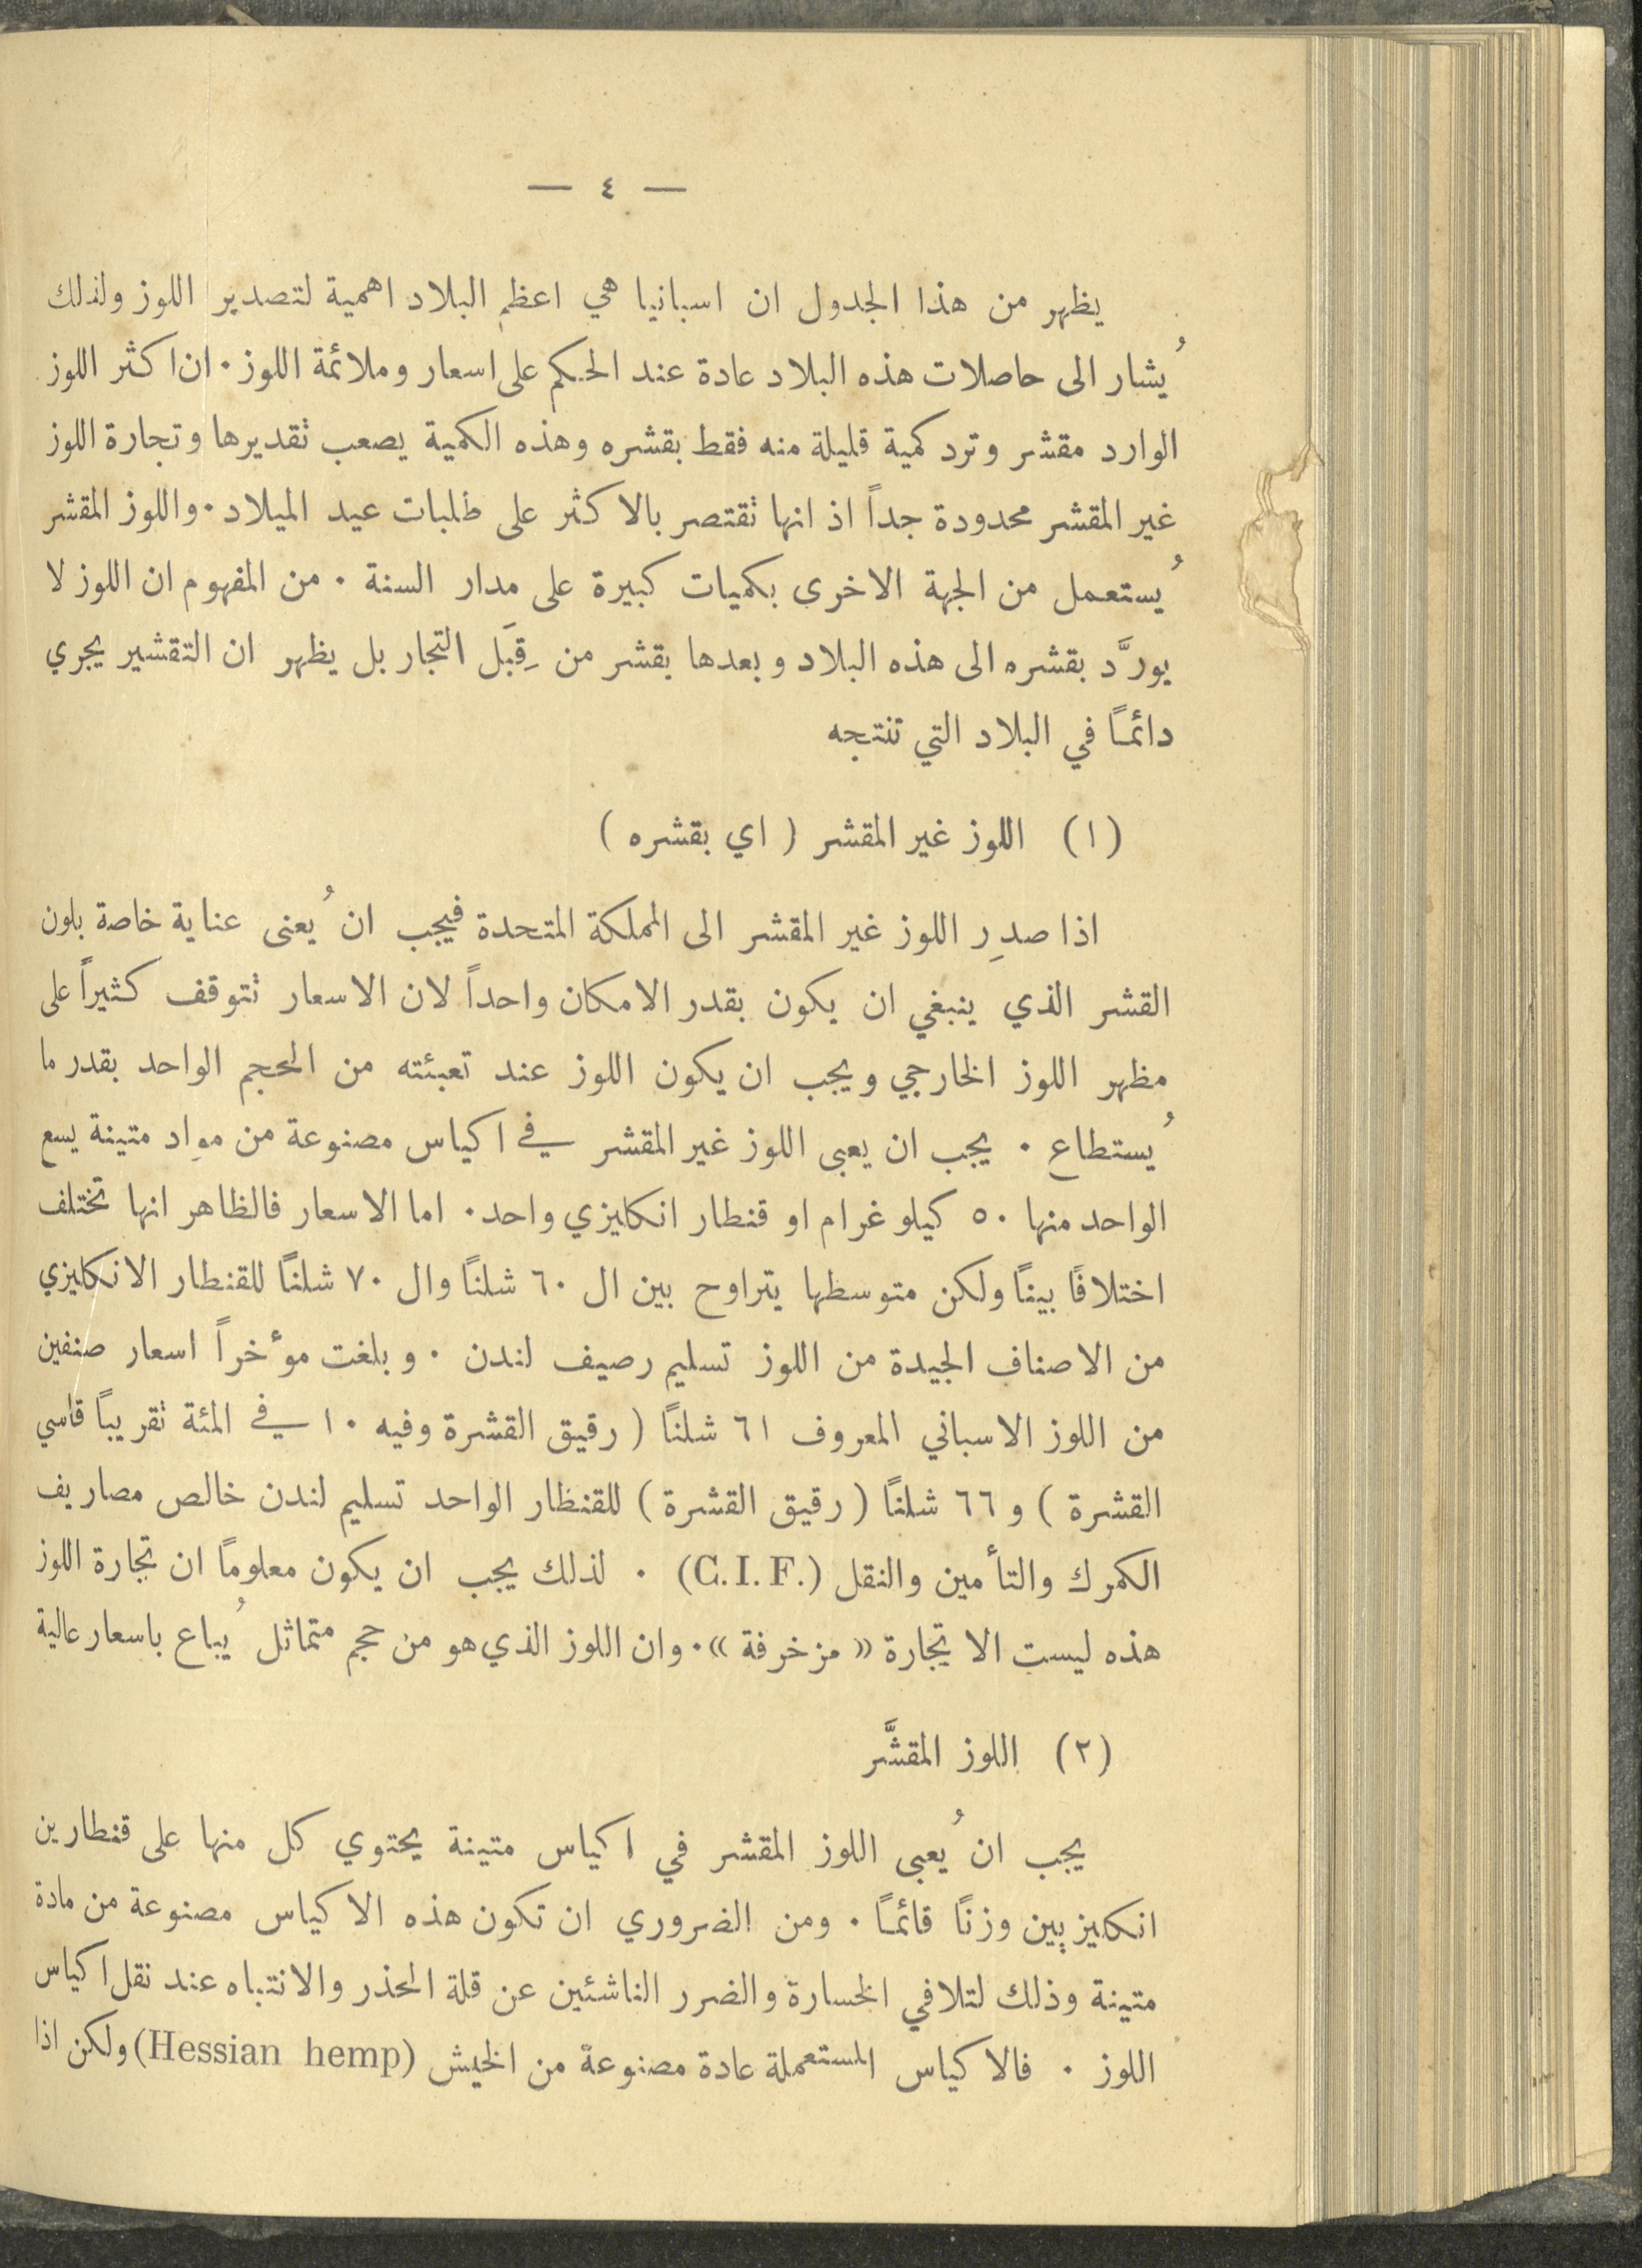 — ٤ —
يظهر من هذا الجدول ان اسبانيا هي اعظم البلاد اهمية لتصدير اللوز ولذلك
يُشار الى حاصلات هذه البلاد عادة عند الحكم على اسعار وملائمة اللوز. ان اكثر اللوز
الوارد مقشر وترد كمية قليلة منه فقط بقشره وهذه الكمية يصعب تقديرها وتجارة اللوز
غير المقشر محدودة جداً اذ انها تقتصر بالاكثر على طلبات عيد الميلاد. واللوز المقشر
يُستعمل من الجهة الاخرى بكميات كبيرة على مدار السنة . من المفهوم ان اللوز لا
يورَّد بقشره الى هذه البلاد وبعدها يقشر من قِبَل التجار بل يظهر ان التقشير يجري
دائمًا في البلاد التي تنتجه
(١) اللوز غير المقشر ( اي بقشره )
اذا صدر اللوز غير المقشر الى المملكة المتحدة فيجب ان يُعنى عناية خاصة بلون
القشر الذي ينبغي ان يكون بقدر الامكان واحداً لان الاسعار تتوقف كثيراً على
مظهر اللوز الخارجي ويجب ان يكون اللوز عند تعبئته من الحجم الواحد بقدر ما
يُستطاع . يجب ان يعبى اللوز غير المقشر في اكياس مصنوعة من مواد متينة يسع
الواحد منها ٥٠ كيلو غرام او قنطار انكليزي واحد. اما الاسعار فالظاهر انها تختلف
اختلافًا بينًا ولكن متوسطها يتراوح بين ال ٦٠ شلنًا وال ٧٠ شلنًا للقنطار الانكليزي
من الاصناف الجيدة من اللوز تسليم رصيف لندن . وبلغت مؤخراً اسعار صنفين
من اللوز الاسباني المعروف ٦١ شلنًا ( رقيق القشرة وفيه ١٠ في المئة تقريبًا قاسي
القشرة ) و ٦٦ شلنًا ( رقيق القشرة ) للقنطار الواحد تسليم لندن خالص مصاريف
الكمرك والتأمين والنقل (C.I.F.) . لذلك يجب ان يكون معلومًا ان تجارة اللوز
هذه ليست الا تجارة «مزخرفة». وان اللوز الذي هو من حجم متماثل يُباع باسعار عالية
(٢) اللوز المقشَّر
يجب ان يُعبى اللوز المقشر في اكياس متينة يحتوي كل منها على قنطارين
انكليزيين وزنًا قائمًا . ومن الضروري ان تكون هذه الاكياس مصنوعة من مادة
متينة وذلك لتلافي الخسارة والضرر الناشئين عن قلة الحذر والانتباه عند نقل اكياس
اللوز . فالاكياس المستعملة عادة مصنوعة من الخيش (Hessian hemp) ولكن اذا